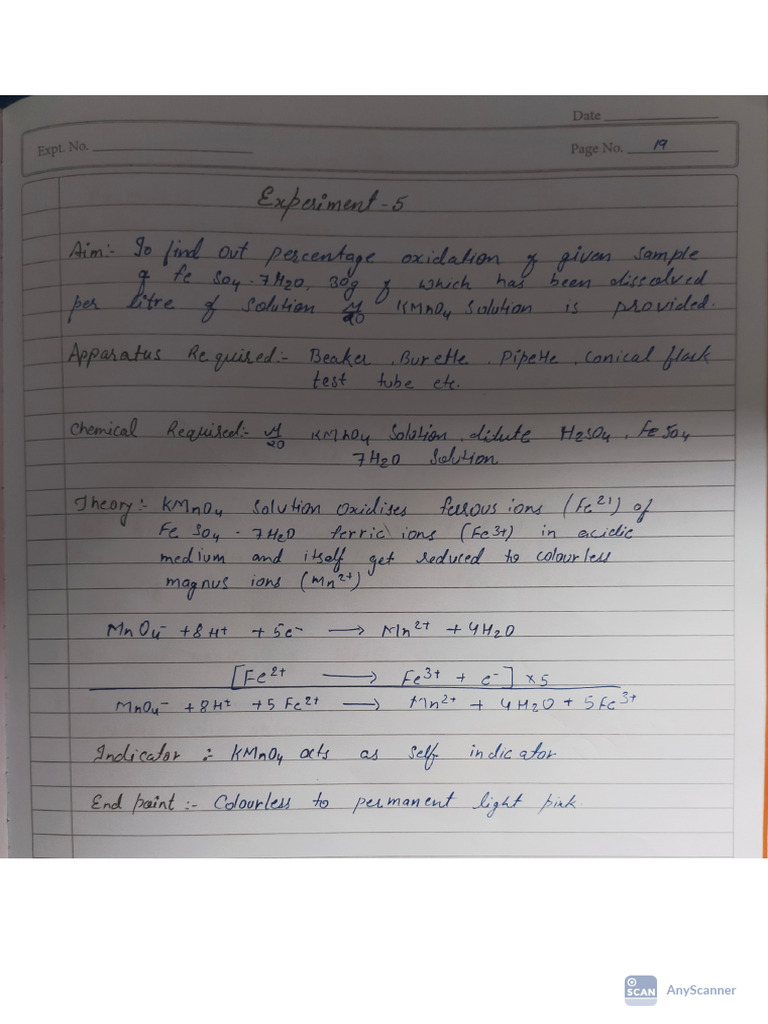 Date
Expt. No.
Page No. 19
Experiment - 5
Aim:- To find out percentage oxidation of given sample
of Fe SO4 . 7H2O, 30g of which has been dissolved
per litre of solution M/20 KMnO4 solution is provided.
Apparatus Required:- Beaker, Burette, Pipette, Conical flask
test tube etc.
Chemical Required:- M/20 KMnO4 Solution, dilute H2SO4, FeSO4
7H2O Solution
Theory:- KMnO4 solution oxidises ferrous ions (Fe2+) of
Fe SO4 . 7H2O ferric ions (Fe3+) in acidic
medium and itself get reduced to colourless
magnus ions (Mn2+)
MnO4- + 8H+ + 5e- → Mn2+ + 4H2O
[Fe2+ → Fe3+ + e-] x 5
MnO4- + 8H+ + 5Fe2+ → Mn2+ + 4H2O + 5Fe3+
Indicator :- KMnO4 acts as self indicator
End point :- Colourless to permanent light pink.
SCAN AnyScanner